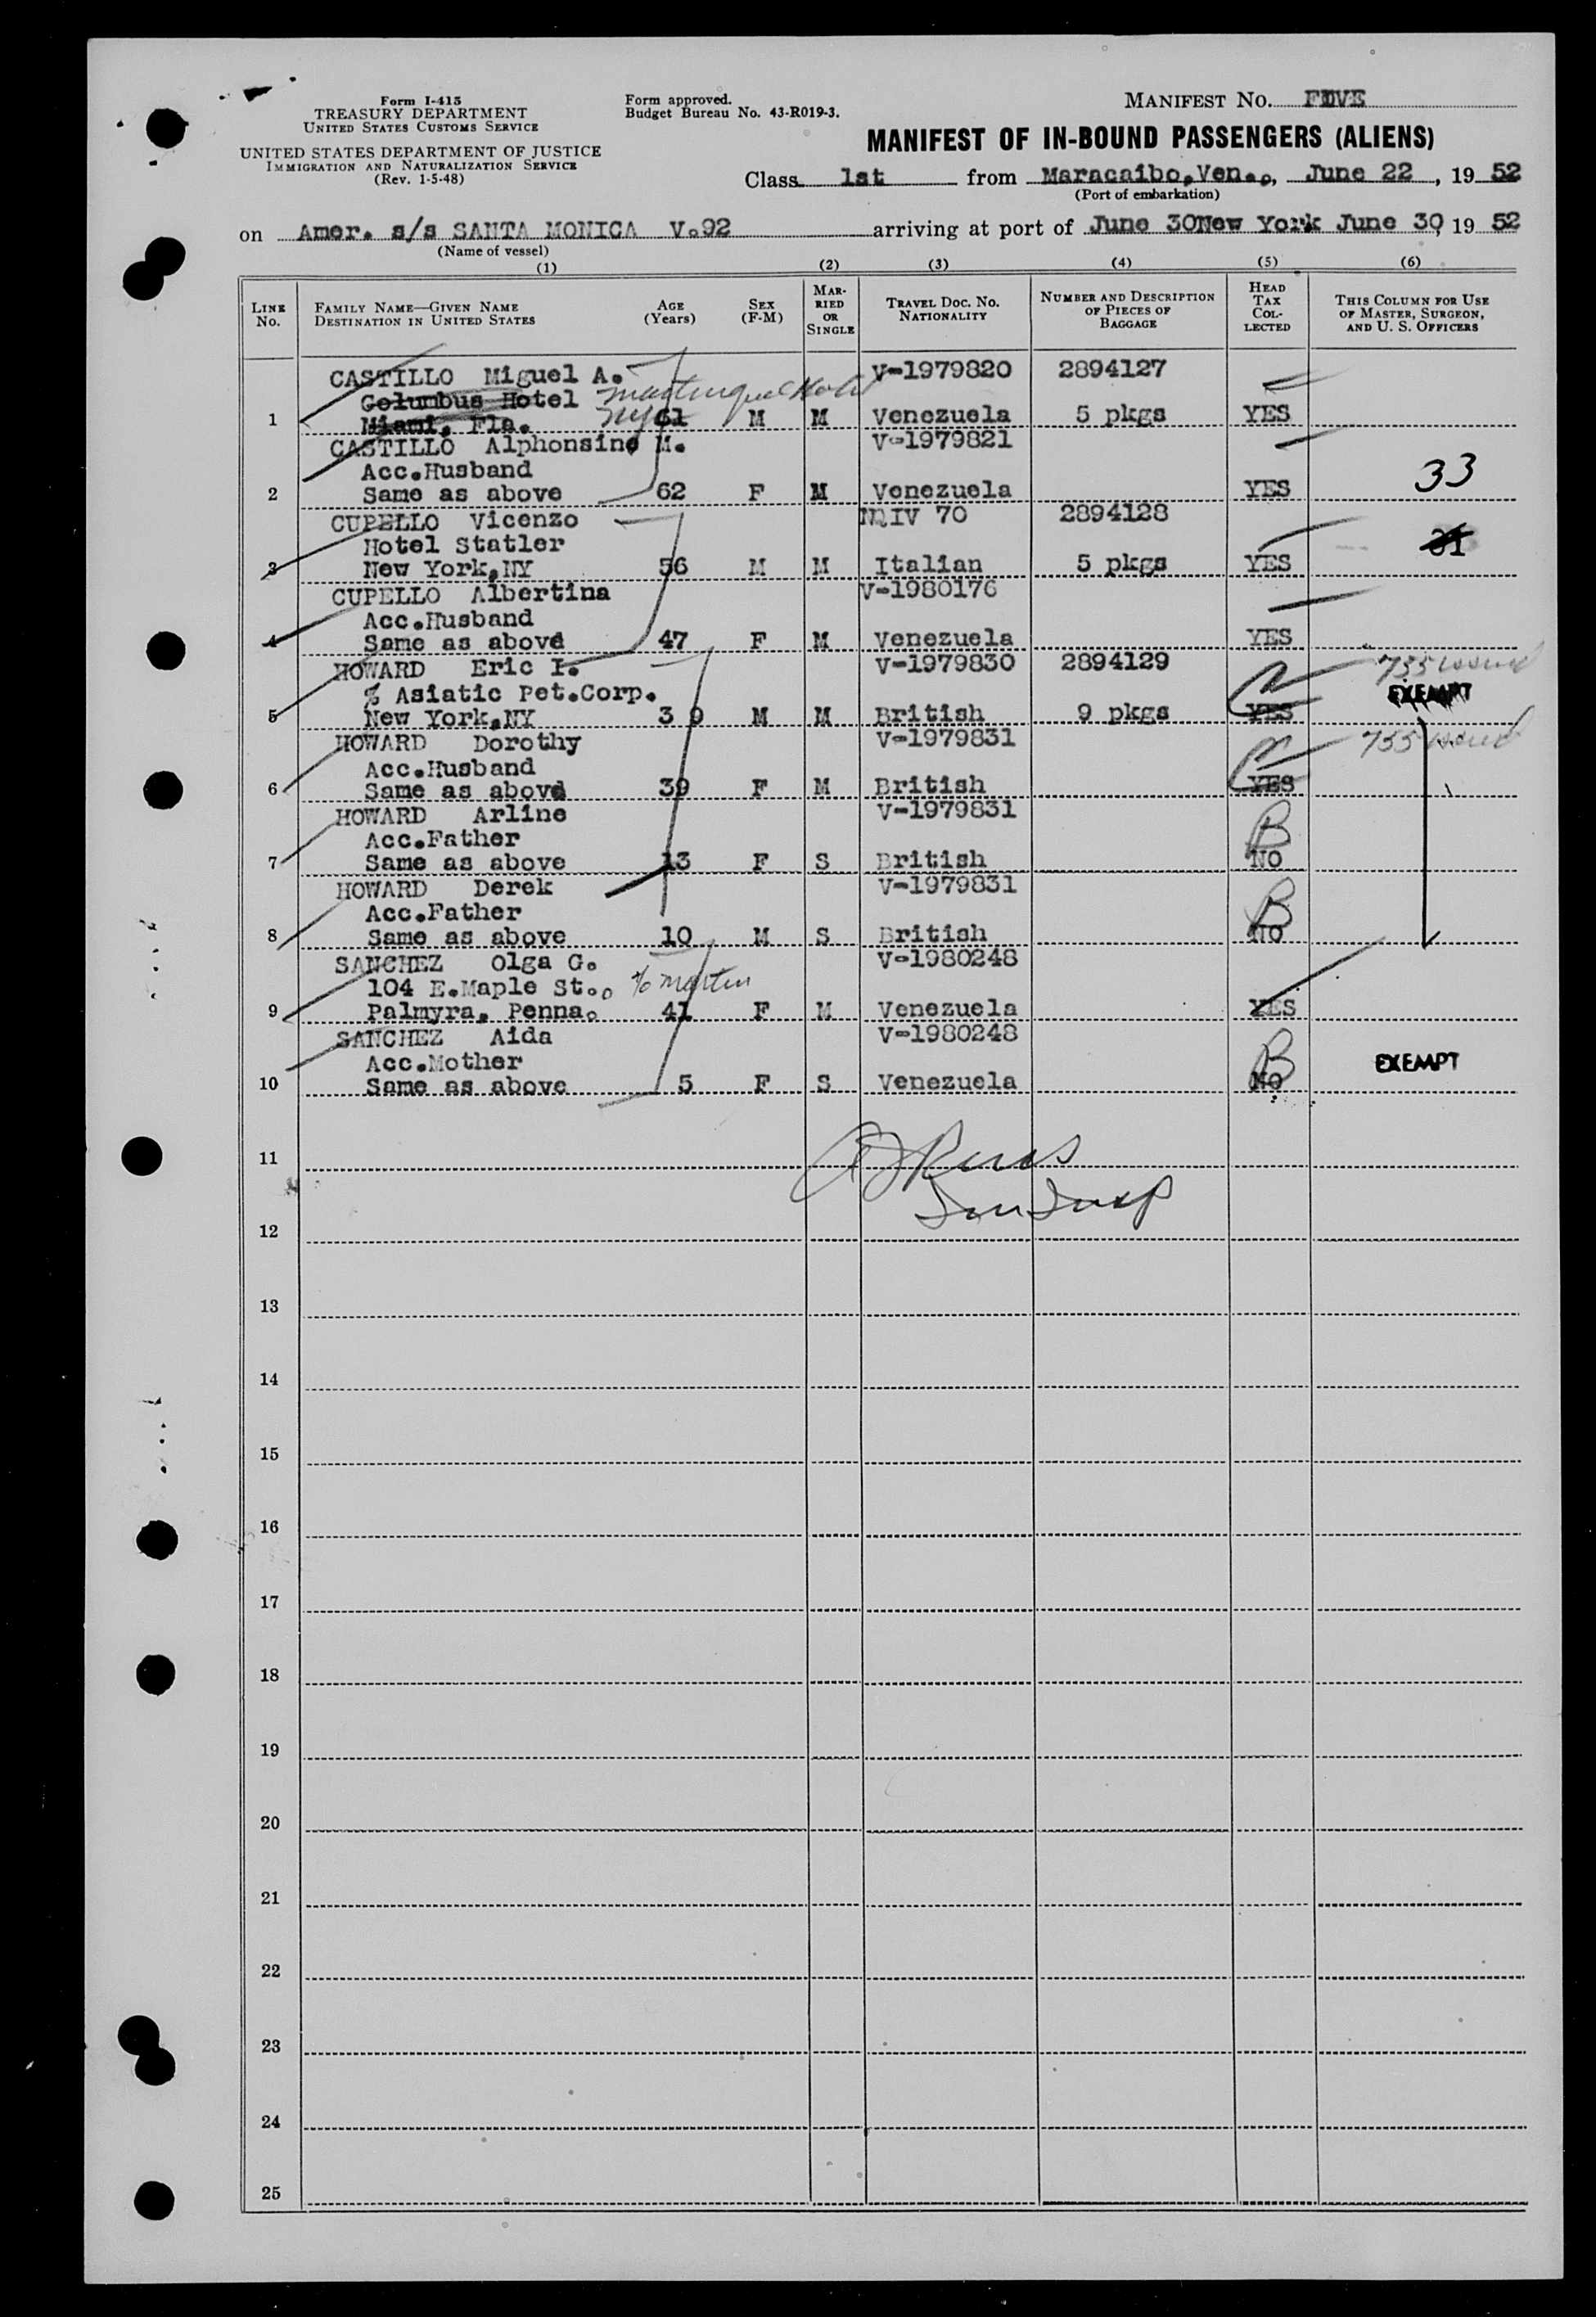 Form I-415
TREASURY DEPARTMENT
UNITED STATES CUSTOMS SERVICE
UNITED STATES DEPARTMENT OF JUSTICE
IMMIGRATION AND NATURALIZATION SERVICE
(Rev. 1-5-48)
Form approved.
Budget Bureau No. 43-R019-3.
MANIFEST NO. FIVE
MANIFEST OF IN-BOUND PASSENGERS (ALIENS)
Class 1st from Maracaibo,Ven., June 22, 19 52
(Port of embarkation)
on Amer. s/s SANTA MONICA V.92 arriving at port of June 30New York June 30, 19 52
(Name of vessel)
(1) (2) (3) (4) (5) (6)
LINE No. FAMILY NAME—GIVEN NAME DESTINATION IN UNITED STATES AGE (Years) SEX (F-M) MARRIED OR SINGLE TRAVEL DOC. NO. NATIONALITY NUMBER AND DESCRIPTION OF PIECES OF BAGGAGE HEAD TAX COLLECTED THIS COLUMN FOR USE OF MASTER, SURGEON, AND U. S. OFFICERS
CASTILLO Miguel A. V-1979820 2894127
Columbus Hotel Hotel
1 Miami, Fla. NY 61 M M Venezuela 5 pkgs YES
CASTILLO Alphonsine M. V-1979821
Acc.Husband 33
2 Same as above 62 F M Venezuela YES
CUPELLO Vicenzo IV 70 2894128
Hotel Statler 31
3 New York,NY 56 M M Italian 5 pkgs YES
CUPELLO Albertina V-1980176
Acc.Husband
4 Same as above 47 F M Venezuela YES
HOWARD Eric I. V-1979830 2894129 755 issued
% Asiatic Pet.Corp. EXEMPT
5 New York,NY 3 9 M M British 9 pkgs YES
HOWARD Dorothy V-1979831 755 issued
Acc.Husband
6 Same as above 39 F M British YES
HOWARD Arline V-1979831
Acc.Father B
7 Same as above 13 F S British NO
HOWARD Derek V-1979831
Acc.Father B
8 Same as above 10 M S British NO
SANCHEZ Olga G. V-1980248
104 E.Maple St., % Martin
9 Palmyra, Penna. 41 F M Venezuela YES
SANCHEZ Aida V-1980248
Acc.Mother B EXEMPT
10 Same as above 5 F S Venezuela NO
11
12
13
14
15
16
17
18
19
20
21
22
23
24
25